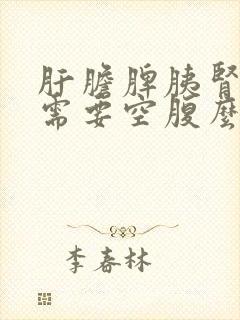 肝膽脾胰腎
需要空腹麼
李春林